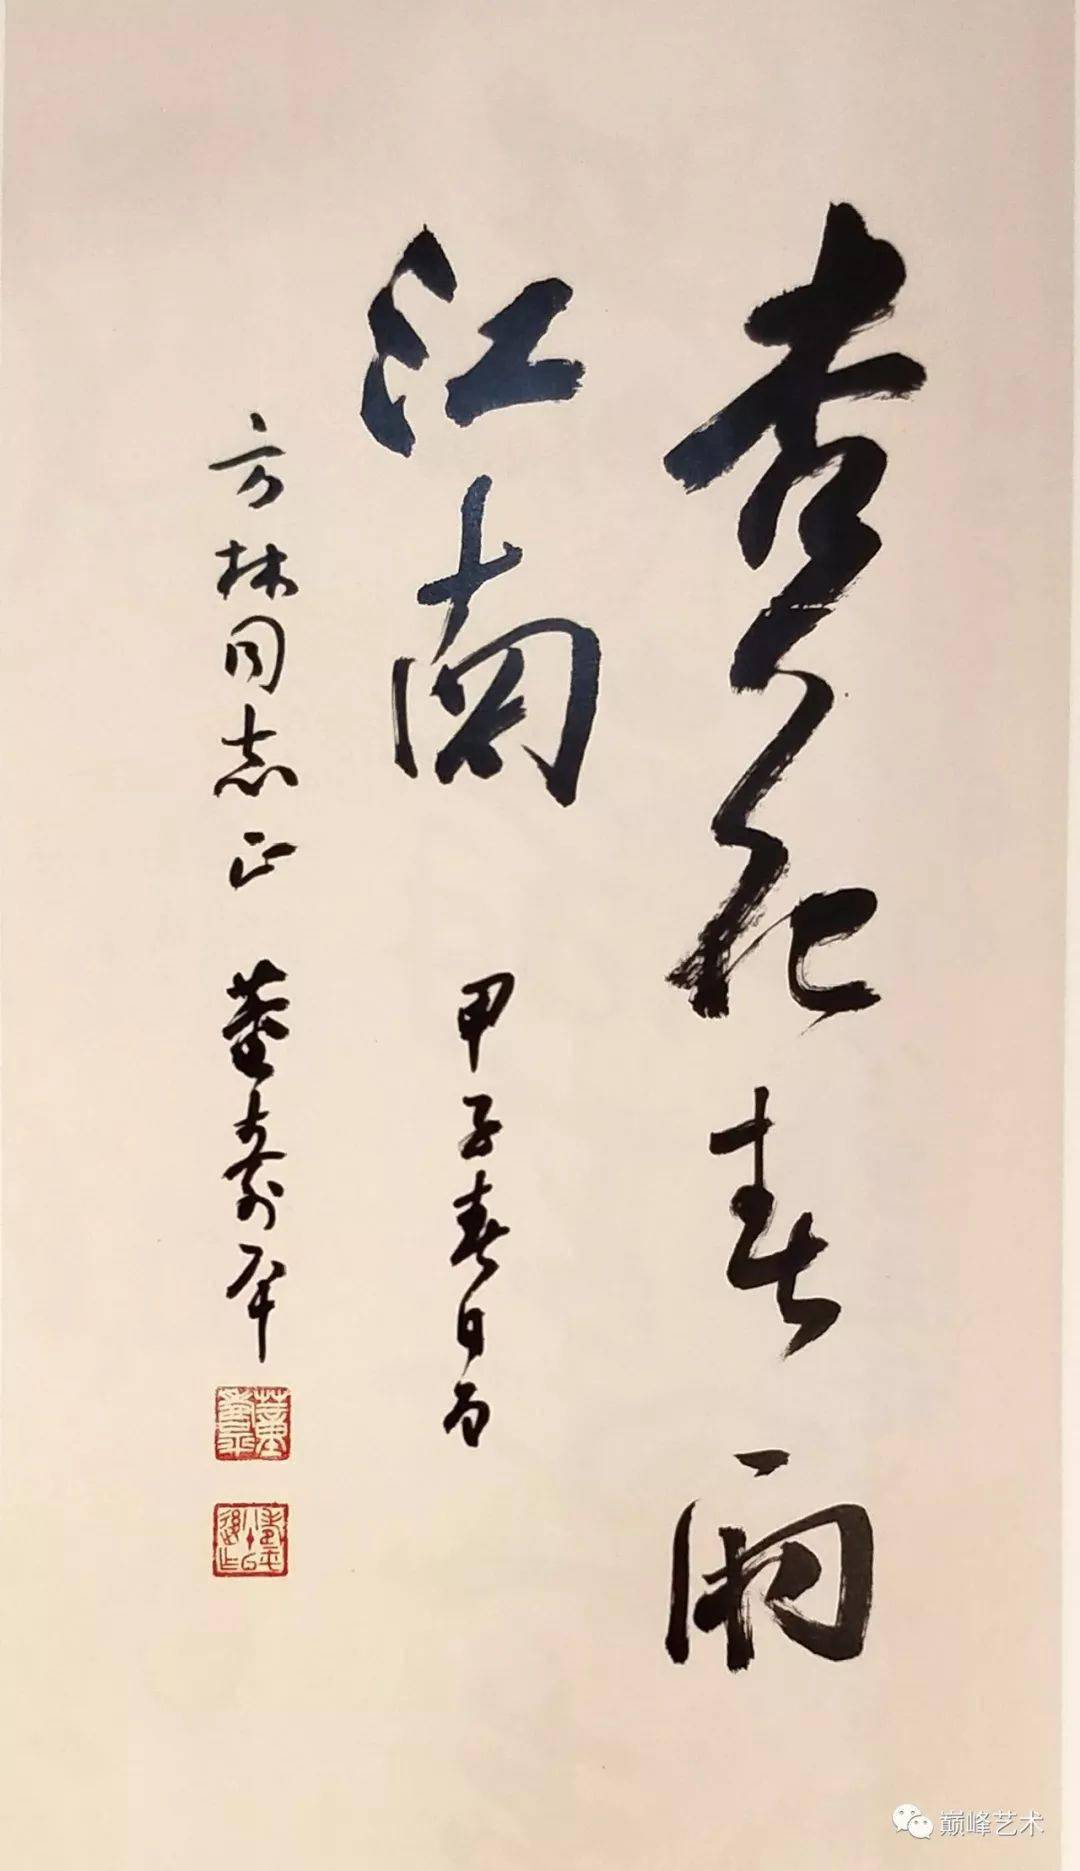 杏花春雨
江南
甲子春日为
方林同志正 董寿平
董壽平
巅峰艺术